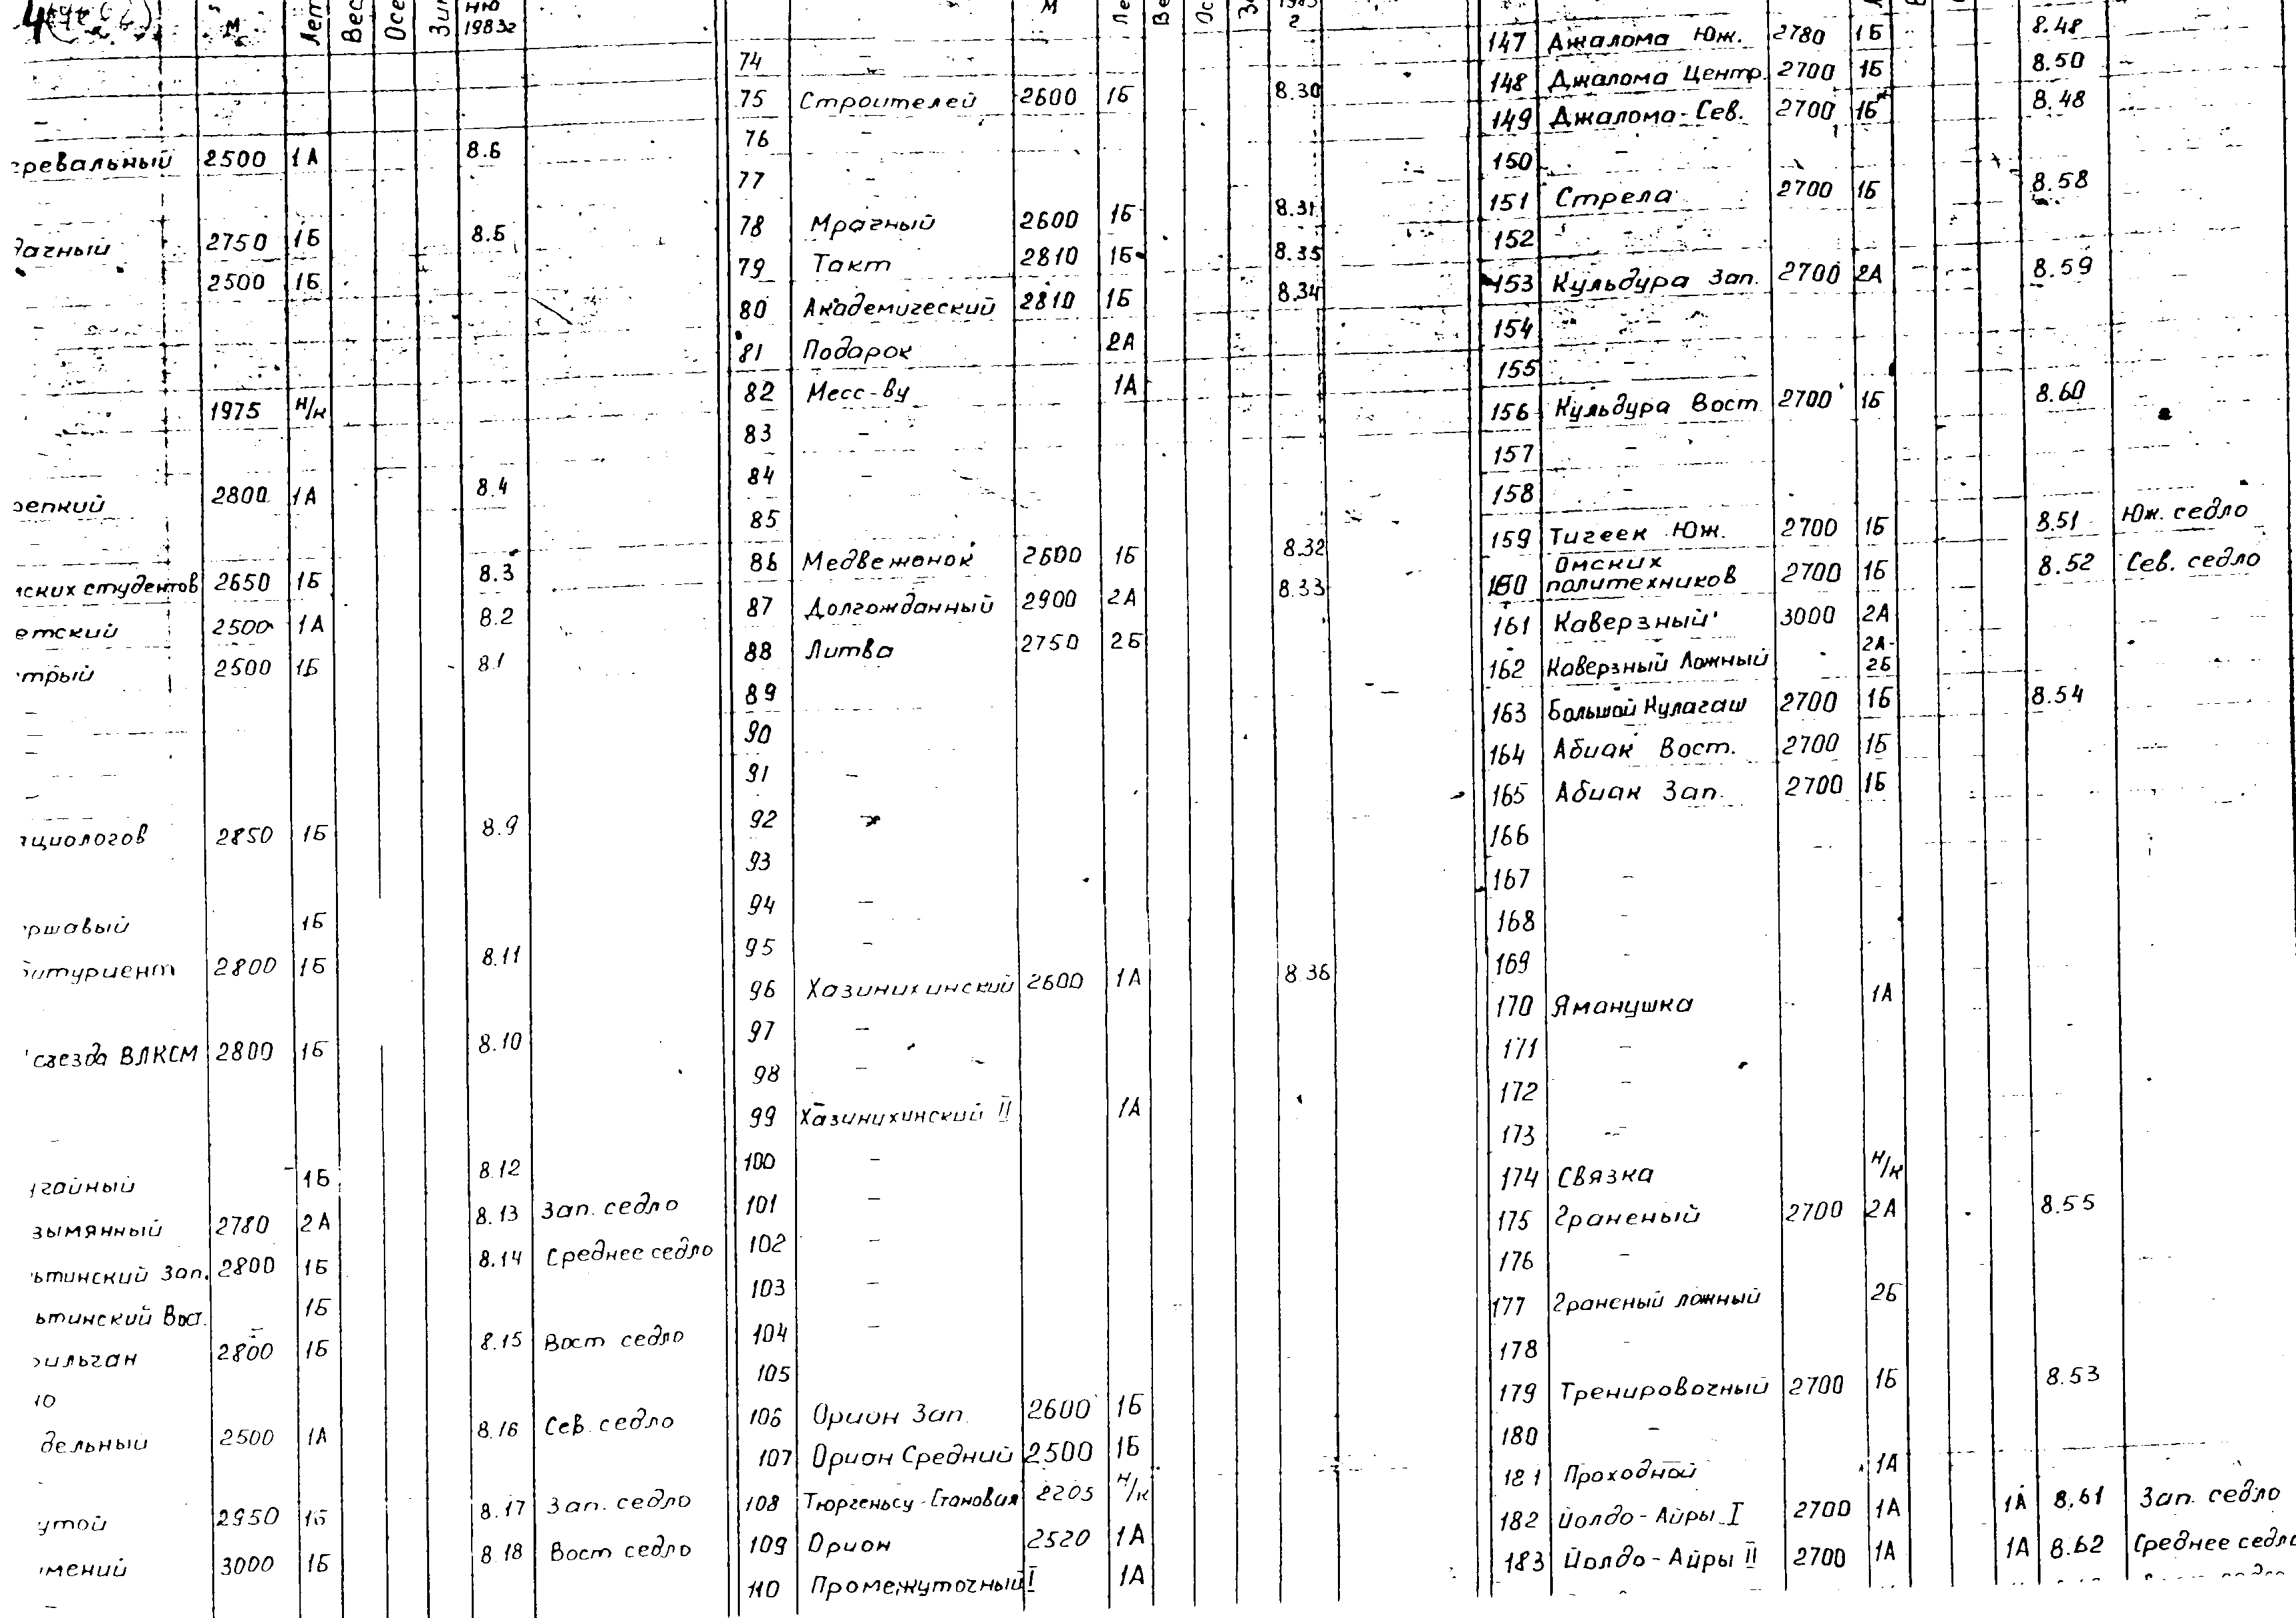 М Лет Вес Осе Зим ню 1983г
2500 1А 8.6
2750 1Б 8.5
2500 1Б
1975 н/к
2800 1А 8.4
студентов 2650 1Б 8.3
2500 1А 8.2
2500 1Б 8.1
2850 1Б 8.9
1Б
2800 1Б 8.11
съезда ВЛКСМ 2800 1Б 8.10
1Б 8.12
2780 2А 8.13 Зап. седло
Зап. 2800 1Б 8.14 Среднее седло
Вост. 1Б
2800 1Б 8.15 Вост седло
2500 1А 8.16 Сев. седло
2950 1Б 8.17 Зап. седло
3000 1Б 8.18 Вост седло
М Ле Ве Ос г
74 –
75 Строителей 2600 1Б 8.30
76 –
77 –
78 Мрачный 2600 1Б 8.31
79 Такт 2810 1Б 8.35
80 Академический 2810 1Б 8.34
81 Подарок 2А
82 Месс-ву 1А
83 –
84 –
85
86 Медвежонок 2600 1Б 8.32
87 Долгожданный 2900 2А 8.33
88 Литва 2750 2Б
89
90
91 –
92 –
93
94 –
95 –
96 Хазинихинский 2600 1А 8.36
97 –
98 –
99 Хазинихинский II 1А
100 –
101 –
102 –
103 –
104 –
105
106 Орион Зап. 2600 1Б
107 Орион Средний 2500 1Б
108 Тюргеньсу-Становая 2205 н/к
109 Орион 2520 1А
110 Промежуточный I 1А
147 Джалома Юж. 2780 1Б 8.48
148 Джалома Центр. 2700 1Б 8.50
149 Джалома-Сев. 2700 1Б 8.48
150 –
151 Стрела 2700 1Б 8.58
152 –
153 Кульдура Зап. 2700 2А 8.59
154 –
155 –
156 Кульдура Вост. 2700 1Б 8.60
157 –
158 –
159 Тигеек Юж. 2700 1Б 8.51 Юж. седло
160 Омских политехников 2700 1Б 8.52 Сев. седло
161 Каверзный 3000 2А
162 Каверзный Ложный 2А-2Б
163 Большой Кулагаш 2700 1Б 8.54
164 Абиак Вост. 2700 1Б
165 Абиак Зап. 2700 1Б
166
167 –
168 –
169 –
170 Яманушка 1А
171 –
172 –
173 –
174 Связка н/к
175 Граненый 2700 2А 8.55
176 –
177 Граненый ложный 2Б
178 –
179 Тренировочный 2700 1Б 8.53
180 –
181 Проходной 1А
182 Йолдо-Айры I 2700 1А 1А 8.61 Зап. седло
183 Йолдо-Айры II 2700 1А 1А 8.62 Среднее седло